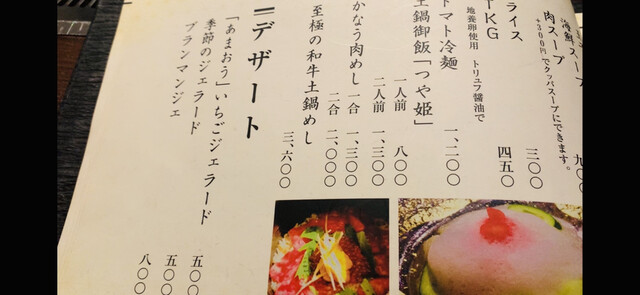 海鮮スープ 九〇
肉スープ
+300円でクッパスープにできます。
ライス 三〇〇
TKG 四五〇
地養卵使用 トリュフ醤油で
トマト冷麺 一、二〇〇
土鍋御飯「つや姫」
一人前 八〇〇
二人前 一、三〇〇
かなう肉めし 一合 一、三〇〇
二合 二、〇〇〇
至極の和牛土鍋めし 三、六〇〇
デザート
「あまおう」いちごジェラード 五〇〇
季節のジェラード 五〇〇
ブランマンジェ 八〇〇